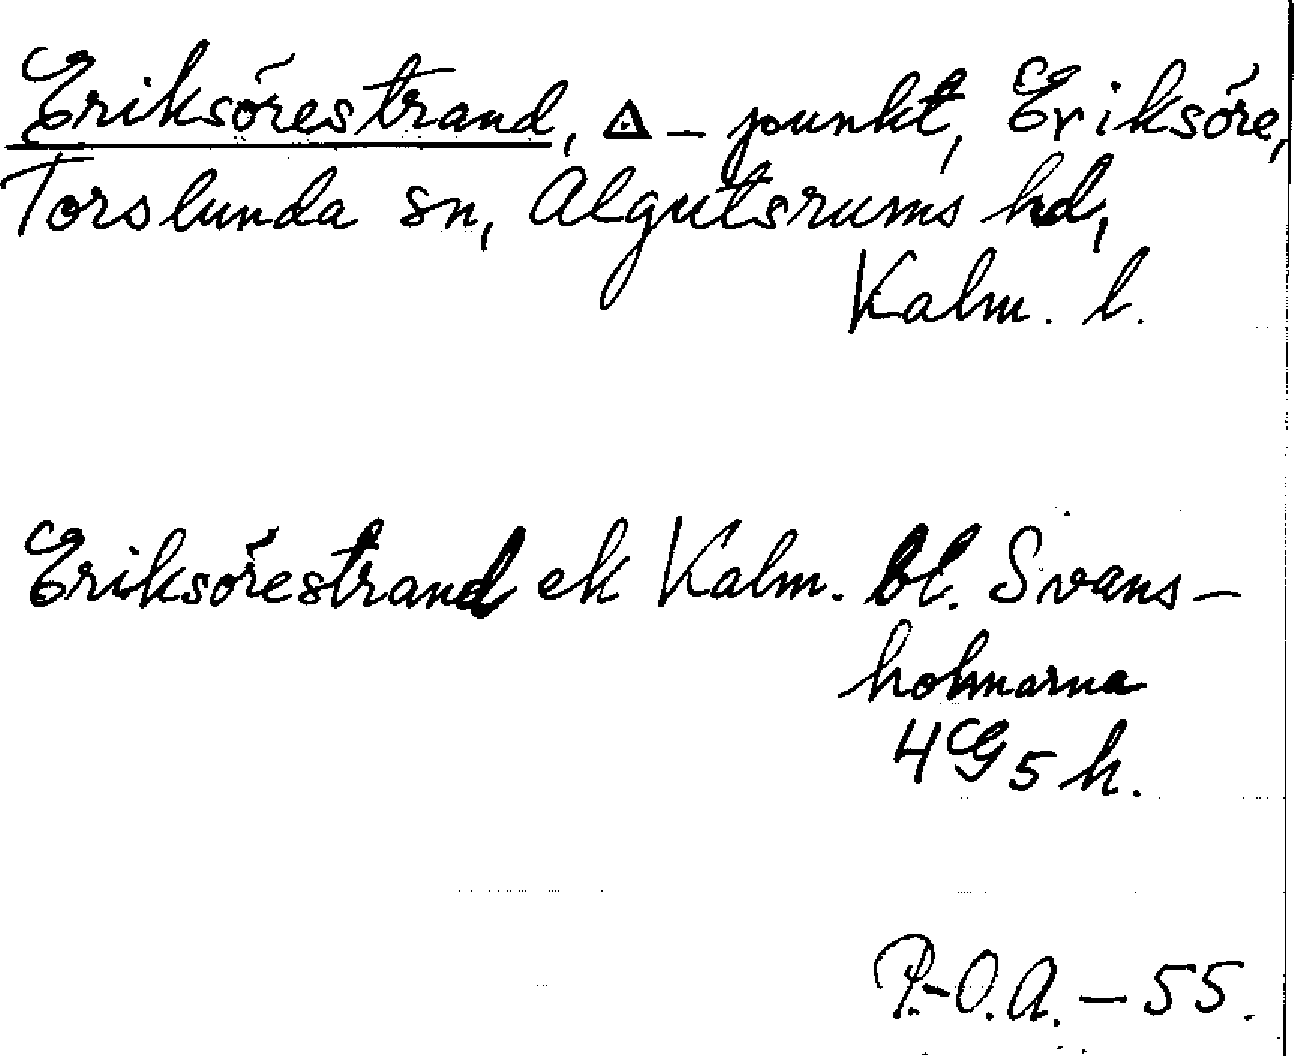 Eriksörestrand, △ - punkt, Eriksöre,
Torslunda sn, Algutsrums hd,
Kalm. l.
Eriksörestrand ek Kalm. bl. Svans-
holmarna
4G5h.
P.-O.A. - 55.